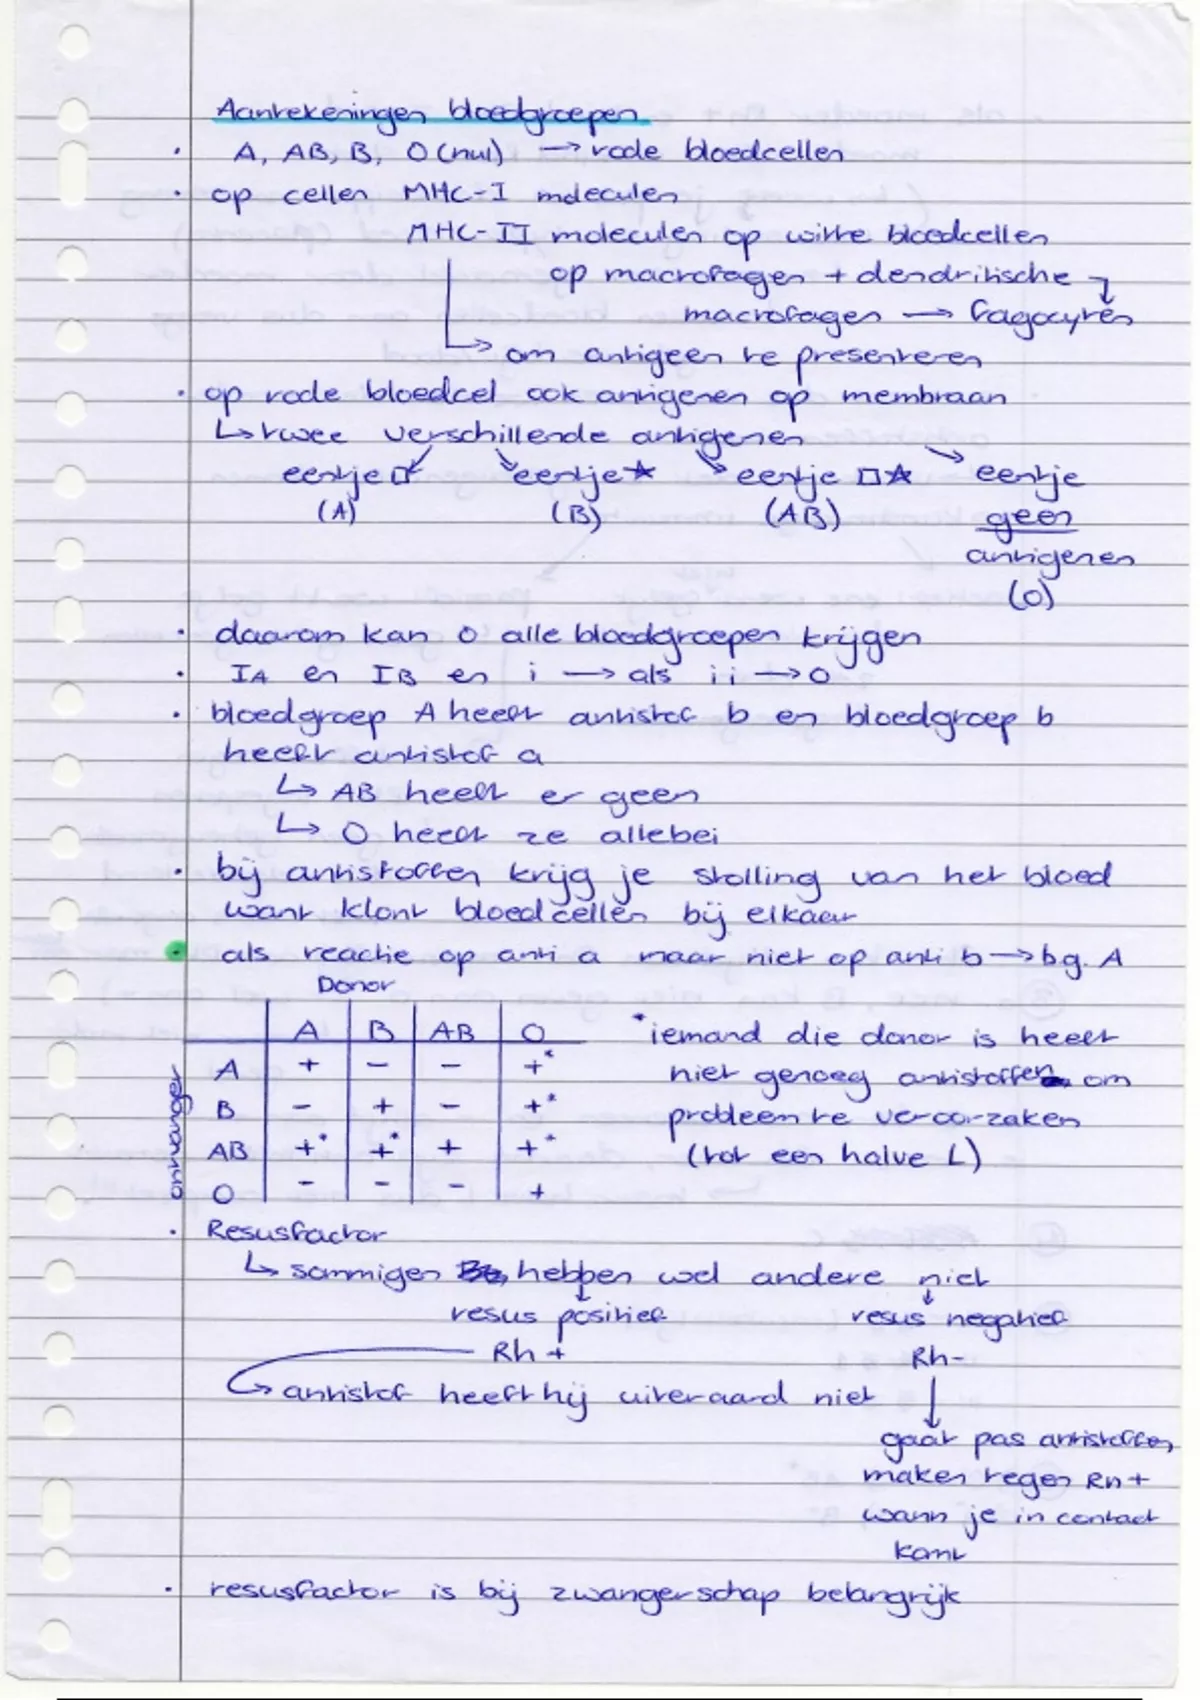 Aantekeningen bloedgroepen
· A, AB, B, O (nul) → rode bloedcellen
· op cellen MHC-I moleculen
MHC-II moleculen op witte bloedcellen
op macrofagen + dendritische
macrofagen → fagocyten
↳ om antigeen te presenteren
· op rode bloedcel ook antigenen op membraan
↳ twee verschillende antigenen
eentje □ eentje ☆ eentje □☆ eentje
(A) (B) (AB) geen
antigenen
(O)
· daarom kan O alle bloedgroepen krijgen
· IA en IB en i → als ii → O
· bloedgroep A heeft antistof b en bloedgroep b
heeft antistof a
↳ AB heeft er geen
↳ O heeft ze allebei
· bij antistoffen krijg je stolling van het bloed
want klont bloedcellen bij elkaar
· als reactie op anti a maar niet op anti b → bg. A
Donor
A B AB O
ontvanger
A + - - +*
B - + - +*
AB +* +* + +*
O - - - +
*iemand die donor is heeft
niet genoeg antistoffen om
probleem te veroorzaken
(tot een halve L)
· Resusfactor
↳ sommigen hebben wel andere niet
resus positief resus negatief
Rh+ Rh-
↳ antistof heeft hij uiteraard niet
gaat pas antistoffen
maken tegen Rh+
wann je in contact
komt
· resusfactor is bij zwangerschap belangrijk